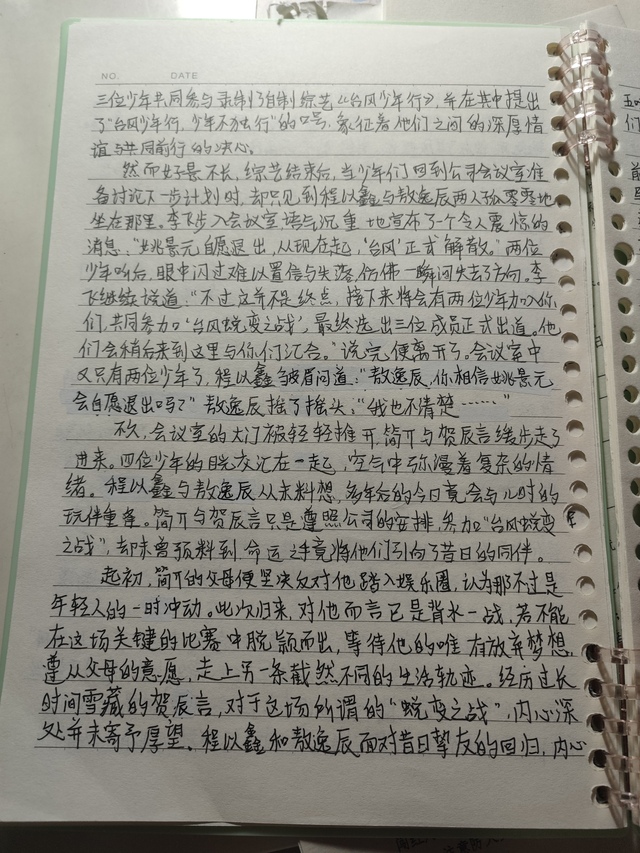 NO.    DATE
三位少年共同参与录制了自制综艺《台风少年行》，并在其中提出
了“台风少年行，少年不独行”的口号，象征着他们之间的深厚情
谊与共同前行的决心。
然而好景不长，综艺结束后，当少年们回到公司会议室准
备讨论下一步计划时，却只见到程以鑫与敖逸辰两人孤零零地
坐在那里。李飞步入会议室，语气沉重地宣布了一个令人震惊的
消息：“姚景元自愿退出，从现在起，‘台风’正式解散。”两位
少年听后，眼中闪过难以置信与失落，仿佛一瞬间失去了方向。李
飞继续说道：“不过这并不是终点，接下来将会有两位少年加入你
们，共同参加‘台风蜕变之战’，最终选出三位成员正式出道。他
们会稍后来到这里与你们汇合。”说完便离开了。会议室中
又只有两位少年了，程以鑫皱眉问道：“敖逸辰，你相信姚景元
会自愿退出吗？”敖逸辰摇了摇头：“我也不清楚……”
不久，会议室的大门被轻轻推开，简亓与贺辰言缓步走了
进来。四位少年的目光交汇在一起，空气中弥漫着复杂的情
绪。程以鑫与敖逸辰从未料想，多年后的今日竟会与儿时的
玩伴重逢。简亓与贺辰言只是遵照公司的安排，参加“台风蜕变
之战”，却未曾预料到命运之手竟将他们引向了昔日的同伴。
起初，简亓的父母便坚决反对他踏入娱乐圈，认为那不过是
年轻人的一时冲动。此次归来，对他而言已是背水一战，若不能
在这场关键的比赛中脱颖而出，等待他的唯有放弃梦想，
遵从父母的意愿，走上另一条截然不同的生活轨迹。经历过长
时间雪藏的贺辰言，对于这场所谓的“蜕变之战”，内心深
处并未寄予厚望。程以鑫和敖逸辰面对昔日挚友的回归，内心